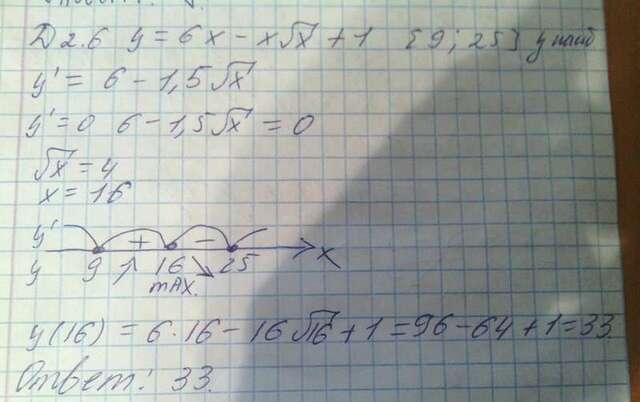 Д2.6 y = 6x - x√x + 1 [9; 25] y наиб
y' = 6 - 1,5√x
y' = 0 6 - 1,5√x = 0
√x = 4
x = 16
y' + - x
y 9 ↗ 16 ↘ 25
max.
y(16) = 6·16 - 16√16 + 1 = 96 - 64 + 1 = 33.
Ответ: 33.